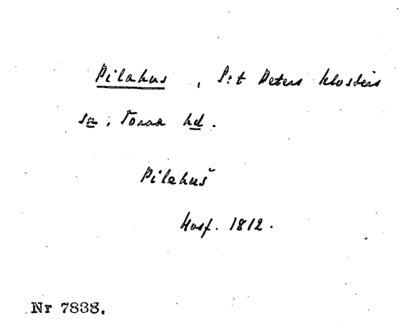 Pilahus, S:t Peters klosters
sn, Torna hd.
Pilehuš
Hasf. 1812.
Nr 7838.